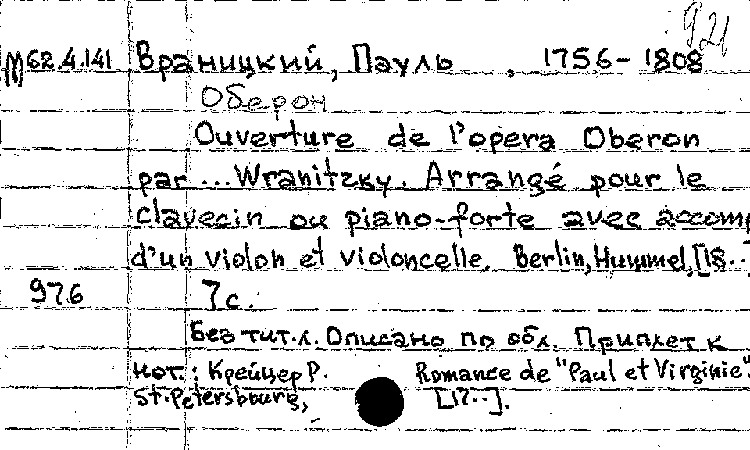 921
М62.4.141 Враницкий, Пауль, 1756-1808
Оберон
Ouverture de l'opera Oberon
par ... Wranitzky. Arrangé pour le
clavecin ou piano-forte avec accomp
d'un violon et violoncelle. Berlin, Hummel, [18..
976 7 с.
Без тит.л. Описано по обл. Приплет к
нот.: Крейцер Р. Romance de "Paul et Virginie".
St.-Petersbourg, [17..].